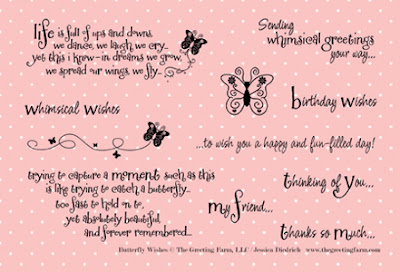 life is full of ups and downs,
we dance, we laugh, we cry...
yet this i know - in dreams we grow,
we spread our wings, we fly...
Sending
whimsical greetings
your way...
birthday wishes
whimsical wishes
...to wish you a happy and fun-filled day!
trying to capture a moment such as this
is like trying to catch a butterfly...
too fast to hold on to,
yet absolutely beautiful
and forever remembered...
thinking of you...
my friend...
thanks so much...
Butterfly Wishes © The Greeting Farm, LLC / Jessica Diedrich www.thegreetingfarm.com